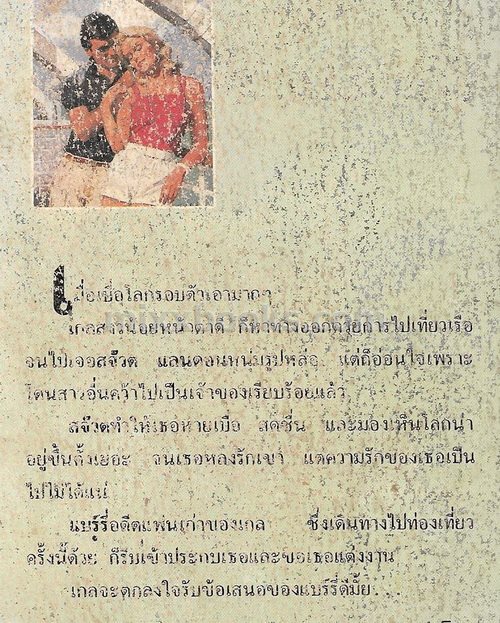 เมื่อเบื่อโลกรอบตัวเอามากๆ
เกลสาวน้อยหน้าตาดี ก็หาทางออกด้วยการไปเที่ยวเรือ
จนไปเจอสจ๊วต แลนดอนหนุ่มรูปหล่อ แต่ก็อ่อนใจเพราะ
โดนสาวอื่นคว้าไปเป็นเจ้าของเรียบร้อยแล้ว
สจ๊วตทำให้เธอหายเบื่อ สดชื่น และมองเห็นโลกน่า
อยู่ขึ้นตั้งเยอะ จนเธอหลงรักเขา แต่ความรักของเธอเป็น
ไปไม่ได้แน่
แบร์รี่อดีตแฟนเก่าของเกล ซึ่งเดินทางไปท่องเที่ยว
ครั้งนี้ด้วย ก็รีบเข้าประกบเธอและขอเธอแต่งงาน
เกลจะตกลงใจรับข้อเสนอของแบร์รี่ดีมั้ย...